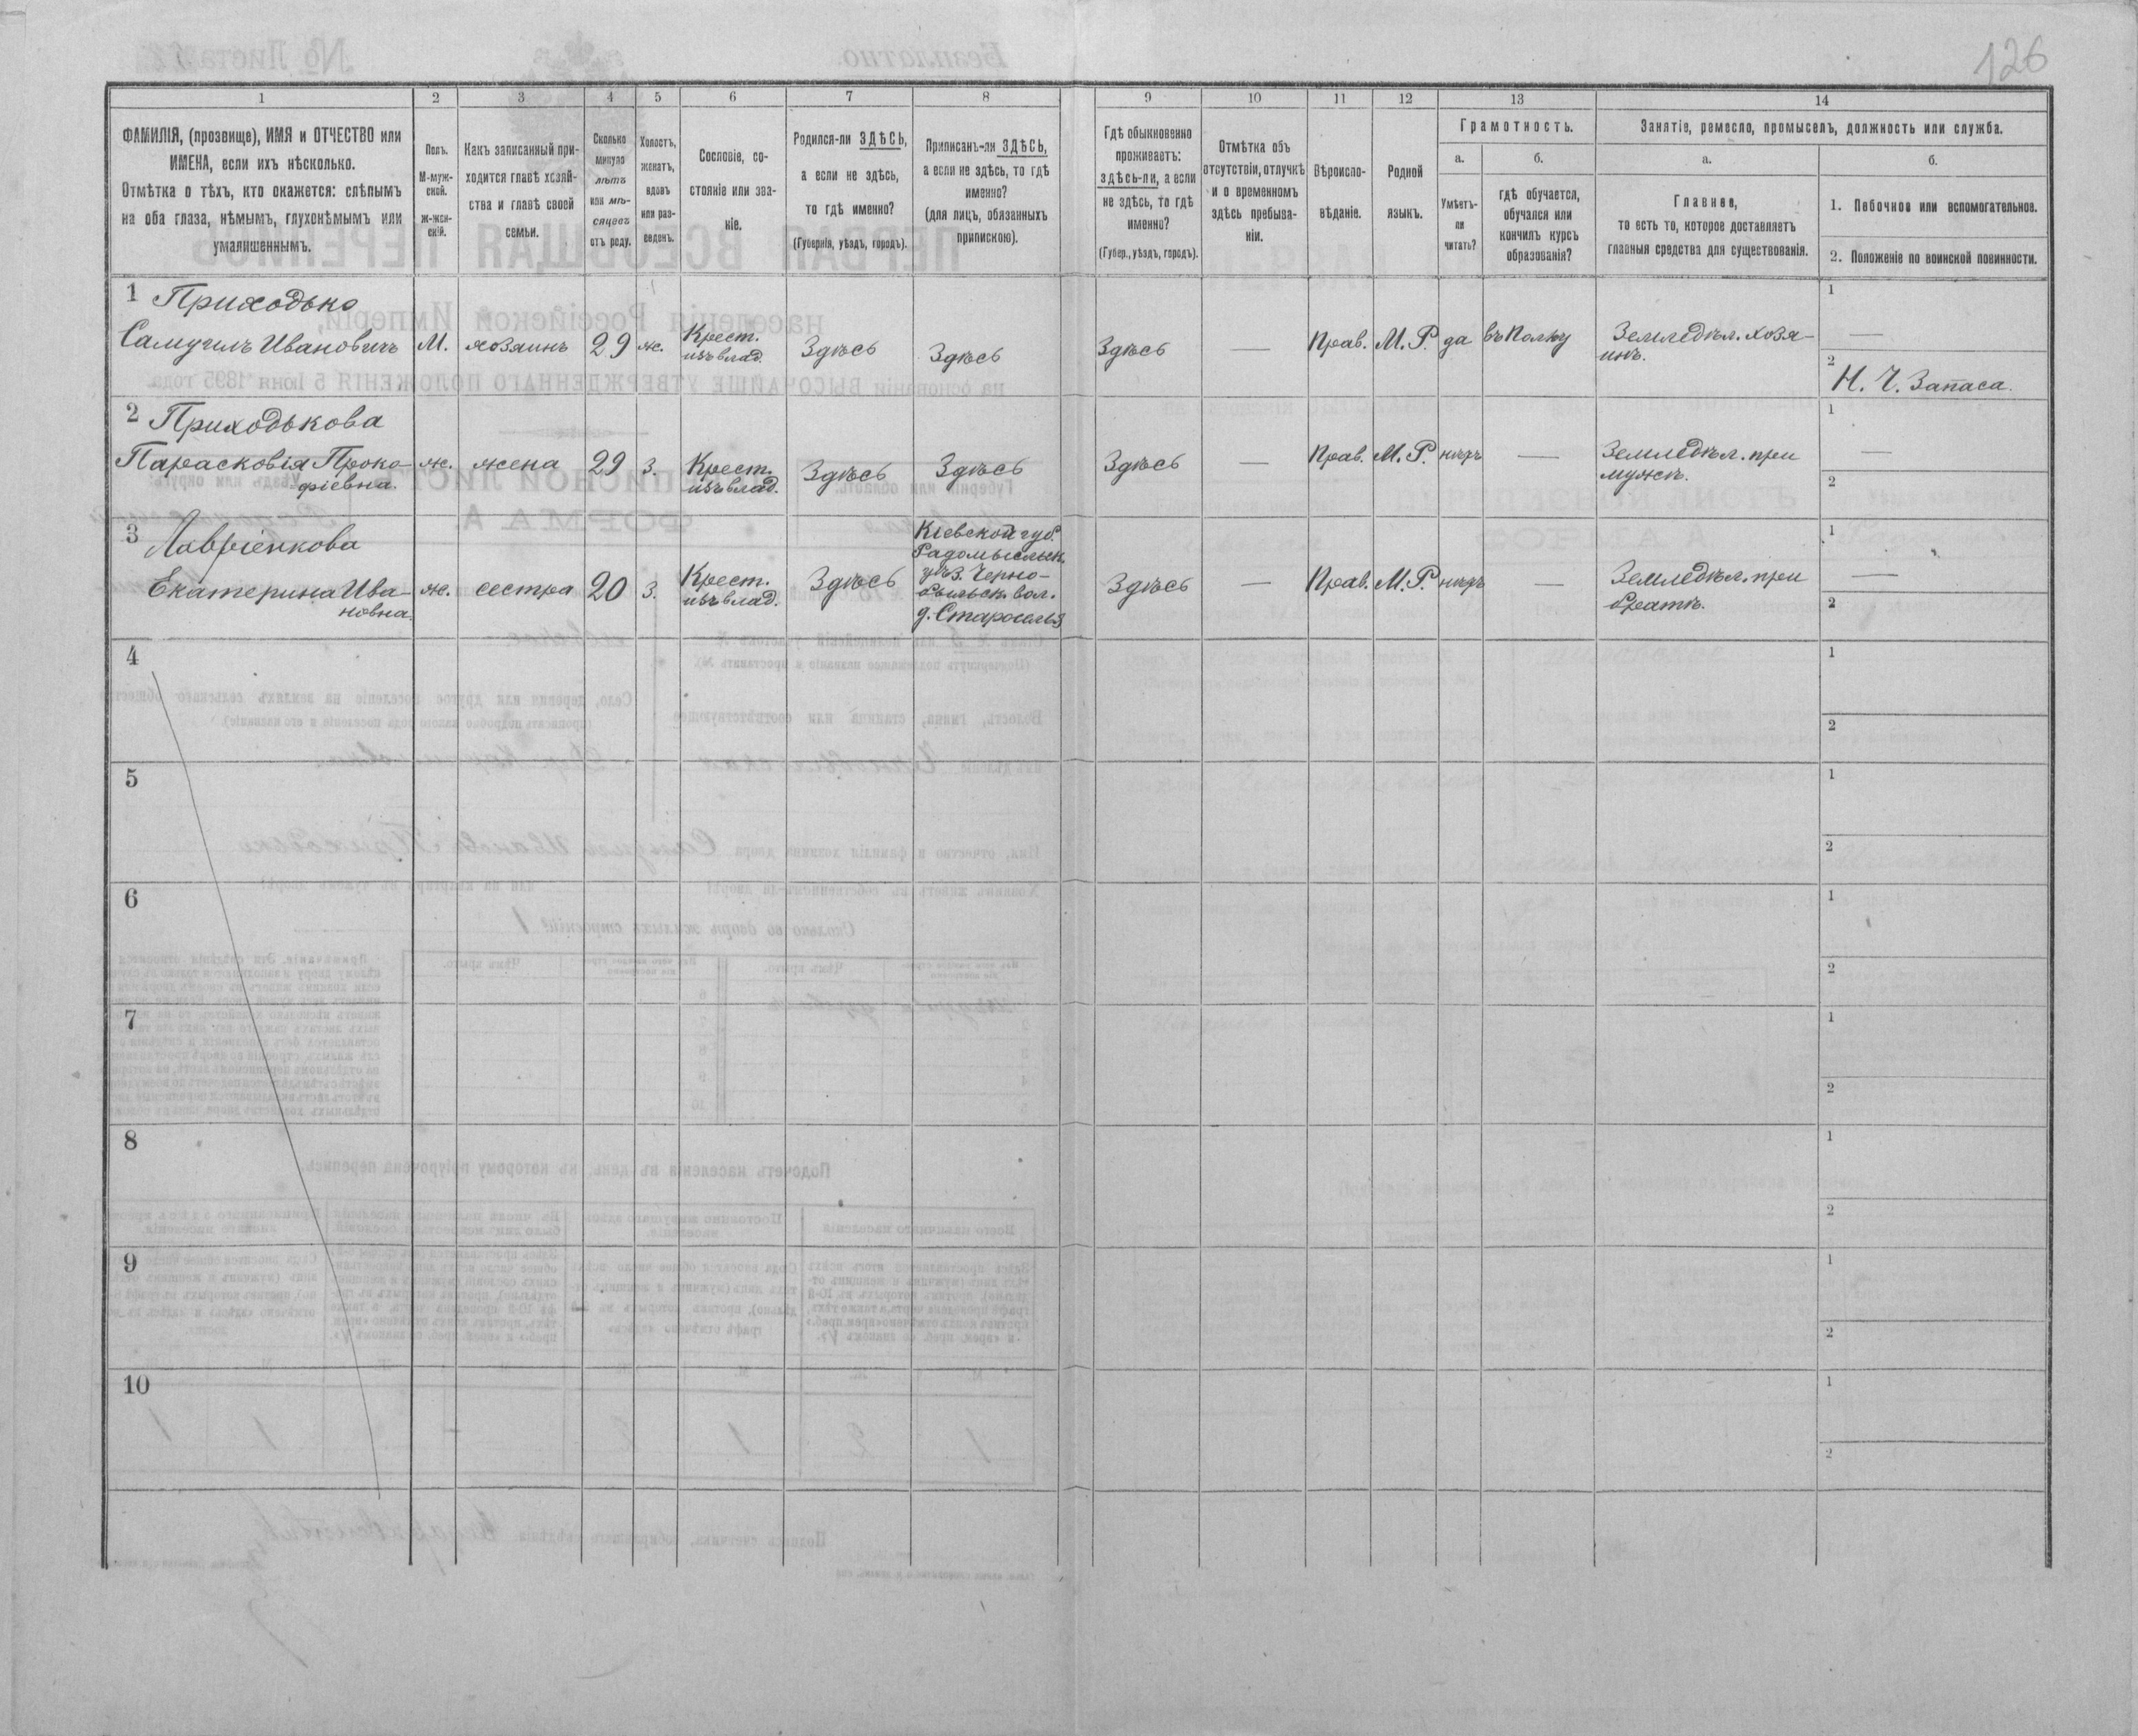 126
1
2
3
4
5
6
7
8
9
10
11
12
13
14
ФАМИЛІЯ, (прозвище), ИМЯ и ОТЧЕСТВО или
ИМЕНА, если ихъ нѣсколько.
Отмѣтка о тѣхъ, кто окажется: слѣпымъ
на оба глаза, нѣмымъ, глухонѣмымъ или
умалишеннымъ.
Полъ.
М-муж-
ской.
ж-жен-
скій.
Какъ записанный при-
ходится главѣ хозяй-
ства и главѣ своей
семьи.
Сколько
минуло
лѣтъ
или мѣ-
сяцевъ
отъ роду.
Холостъ,
женатъ,
вдовъ
или раз-
веденъ.
Сословіе, со-
стояніе или зва-
ніе.
Родился-ли ЗДѢСЬ,
а если не здѣсь,
то гдѣ именно?
(Губернія, уѣздъ, городъ).
Приписанъ-ли ЗДѢСЬ,
а если не здѣсь, то гдѣ
именно?
(для лицъ, обязанныхъ
припискою).
Гдѣ обыкновенно
проживаетъ:
здѣсь-ли, а если
не здѣсь, то гдѣ
именно?
(Губер., уѣздъ, городъ).
Отмѣтка объ
отсутствіи, отлучкѣ
и о временномъ
здѣсь пребыва-
ніи.
Вѣроиспо-
вѣданіе.
Родной
языкъ.
Грамотность.
а.
Умѣетъ-
ли
читать?
б.
гдѣ обучается,
обучался или
кончилъ курсъ
образованія?
Занятіе, ремесло, промыселъ, должность или служба.
а.
Главное,
то есть то, которое доставляетъ
главныя средства для существованія.
б.
1. Побочное или вспомогательное.
2. Положеніе по воинской повинности.
1 Приходько
Самуилъ Ивановичъ
М.
хозяинъ
29
ж.
Крест.
изъ влад.
Здѣсь
Здѣсь
Здѣсь
—
Прав.
М.Р.
да
въ полку
Земледѣл. хозя-
инъ.
1
—
2
Н. Ч. Запаса.
2 Приходькова
Парасковія Проко-
фіевна.
ж.
жена
29
З.
Крест.
изъ влад.
Здѣсь
Здѣсь
Здѣсь
—
Прав.
М.Р.
нѣтъ
—
Земледѣл. при
мужѣ.
1
—
2
3 Лавріенкова
Екатерина Ива-
новна.
ж.
сестра
20
З.
Крест.
изъ влад.
Здѣсь
Кіевской губ.
Радомысльск.
уѣз. Черно-
быльск. вол.
д. Староселья
Здѣсь
—
Прав.
М.Р.
нѣтъ
—
Земледѣл. при
братѣ.
1
—
2
4
1
2
5
1
2
6
1
2
7
1
2
8
1
2
9
1
2
10
1
2